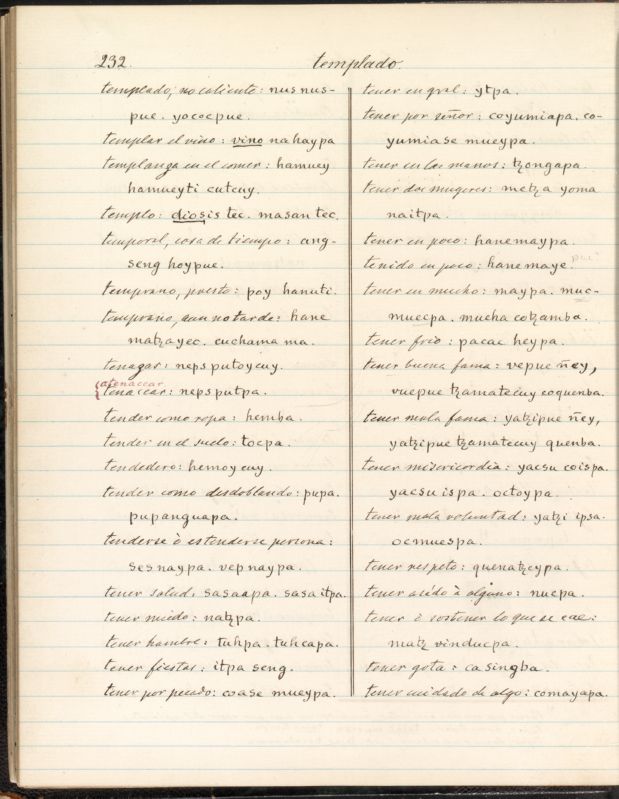 232.
templado.
templado, no caliente: nus nus-
pue. yocoepue.
templar el vino: vino nahaypa
templanza en el comer: hamuey
hamueyti cuteuy.
templo: diosis tec. masan tec.
temporal, cosa de tiempo: ang-
seng hoypue.
temprano, presto: poy hanuti.
temprano, aun no tarde: hane
matzayec. cuchama ma.
tenazas: neps putoycuy.
atenacear
tenacear: neps putpa.
tender como ropa: hemba.
tender en el suelo: tocpa.
tendedero: hemoycuy.
tender como desdoblando: pupa.
pupanguapa.
tenderse ò estenderse persona:
sesnaypa. vepnaypa.
tener salud, sasaapa. sasa itpa.
tener miedo: natzpa.
tener hambre: tuhpa. tuhcapa.
tener fiestas: itpa seng.
tener por pecado: coase mueypa.
tener en qral: ytpa.
tener por señor: coyumiapa. co-
yumiase mueypa.
tener en las manos: tzongapa.
tener dos mugeres: metza yoma
naitpa.
tener en poco: hanemaypa.
tenido en poco: hanemaye. pue
tener en mucho: maypa. muc-
muecpa. mucha cotzamba.
tener frio: pacac heypa.
tener buena fama: vepue ñey,
vuepue tzamatecuy coquenba.
tener mala fama: yatzipue ñey,
yatzipue tzamatecuy quenba.
tener misericordia: yacsu coispa.
yacsu ispa. octoypa.
tener mala voluntad: yatzi ipsa.
ocmuespa.
tener respeto: quenatzeypa.
tener asido à alguno: nucpa.
tener ò sostener lo que se cae:
mutz vinducpa.
tener gota: casingba.
tener cuidado de algo: comayapa.